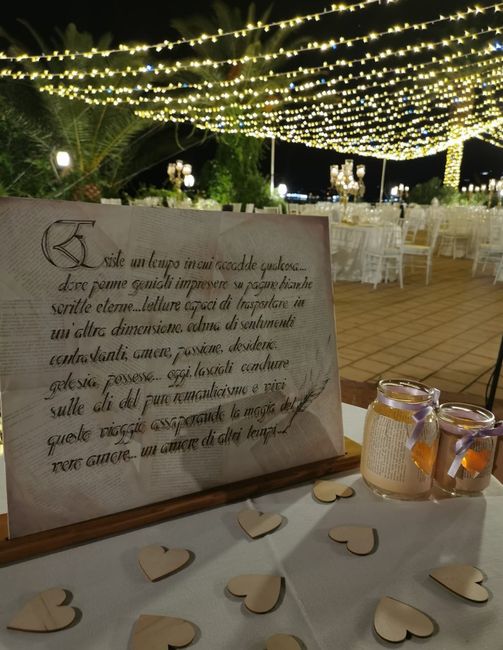 Esiste un tempo in cui accadde qualcosa...
dove penne geniali impressere su pagine bianche
scritte eterne... letture capaci di trasportare in
un'altra dimensione, colma di sentimenti
contrastanti, amore, passione, desiderio,
gelosia, possesso... oggi lasciati condurre
sulle ali del puro romanticismo e vivi
questo viaggio assaporando la magia del
vero amore... un amore di altri tempi...